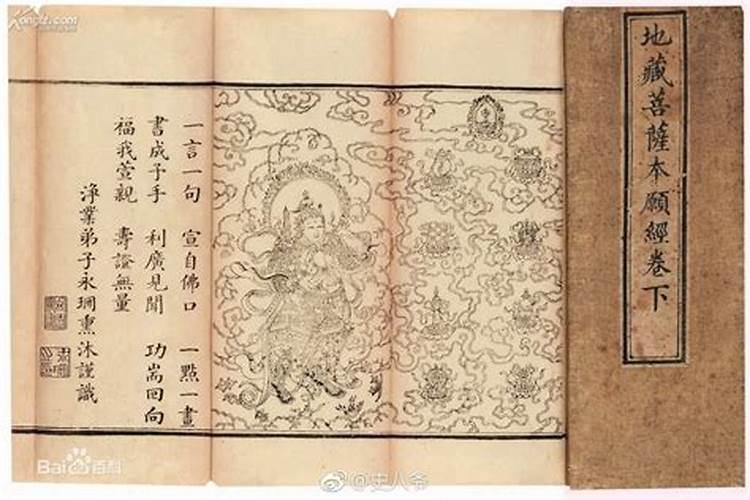 地藏菩薩本願經卷下
一言一句 宣自佛口 一點一畫
書成予手 利廣見聞 功耑回向
福我萱親 壽證無量
淨業弟子永 熏沐謹識
Kongfz.com
Bai 百科
@史人爷